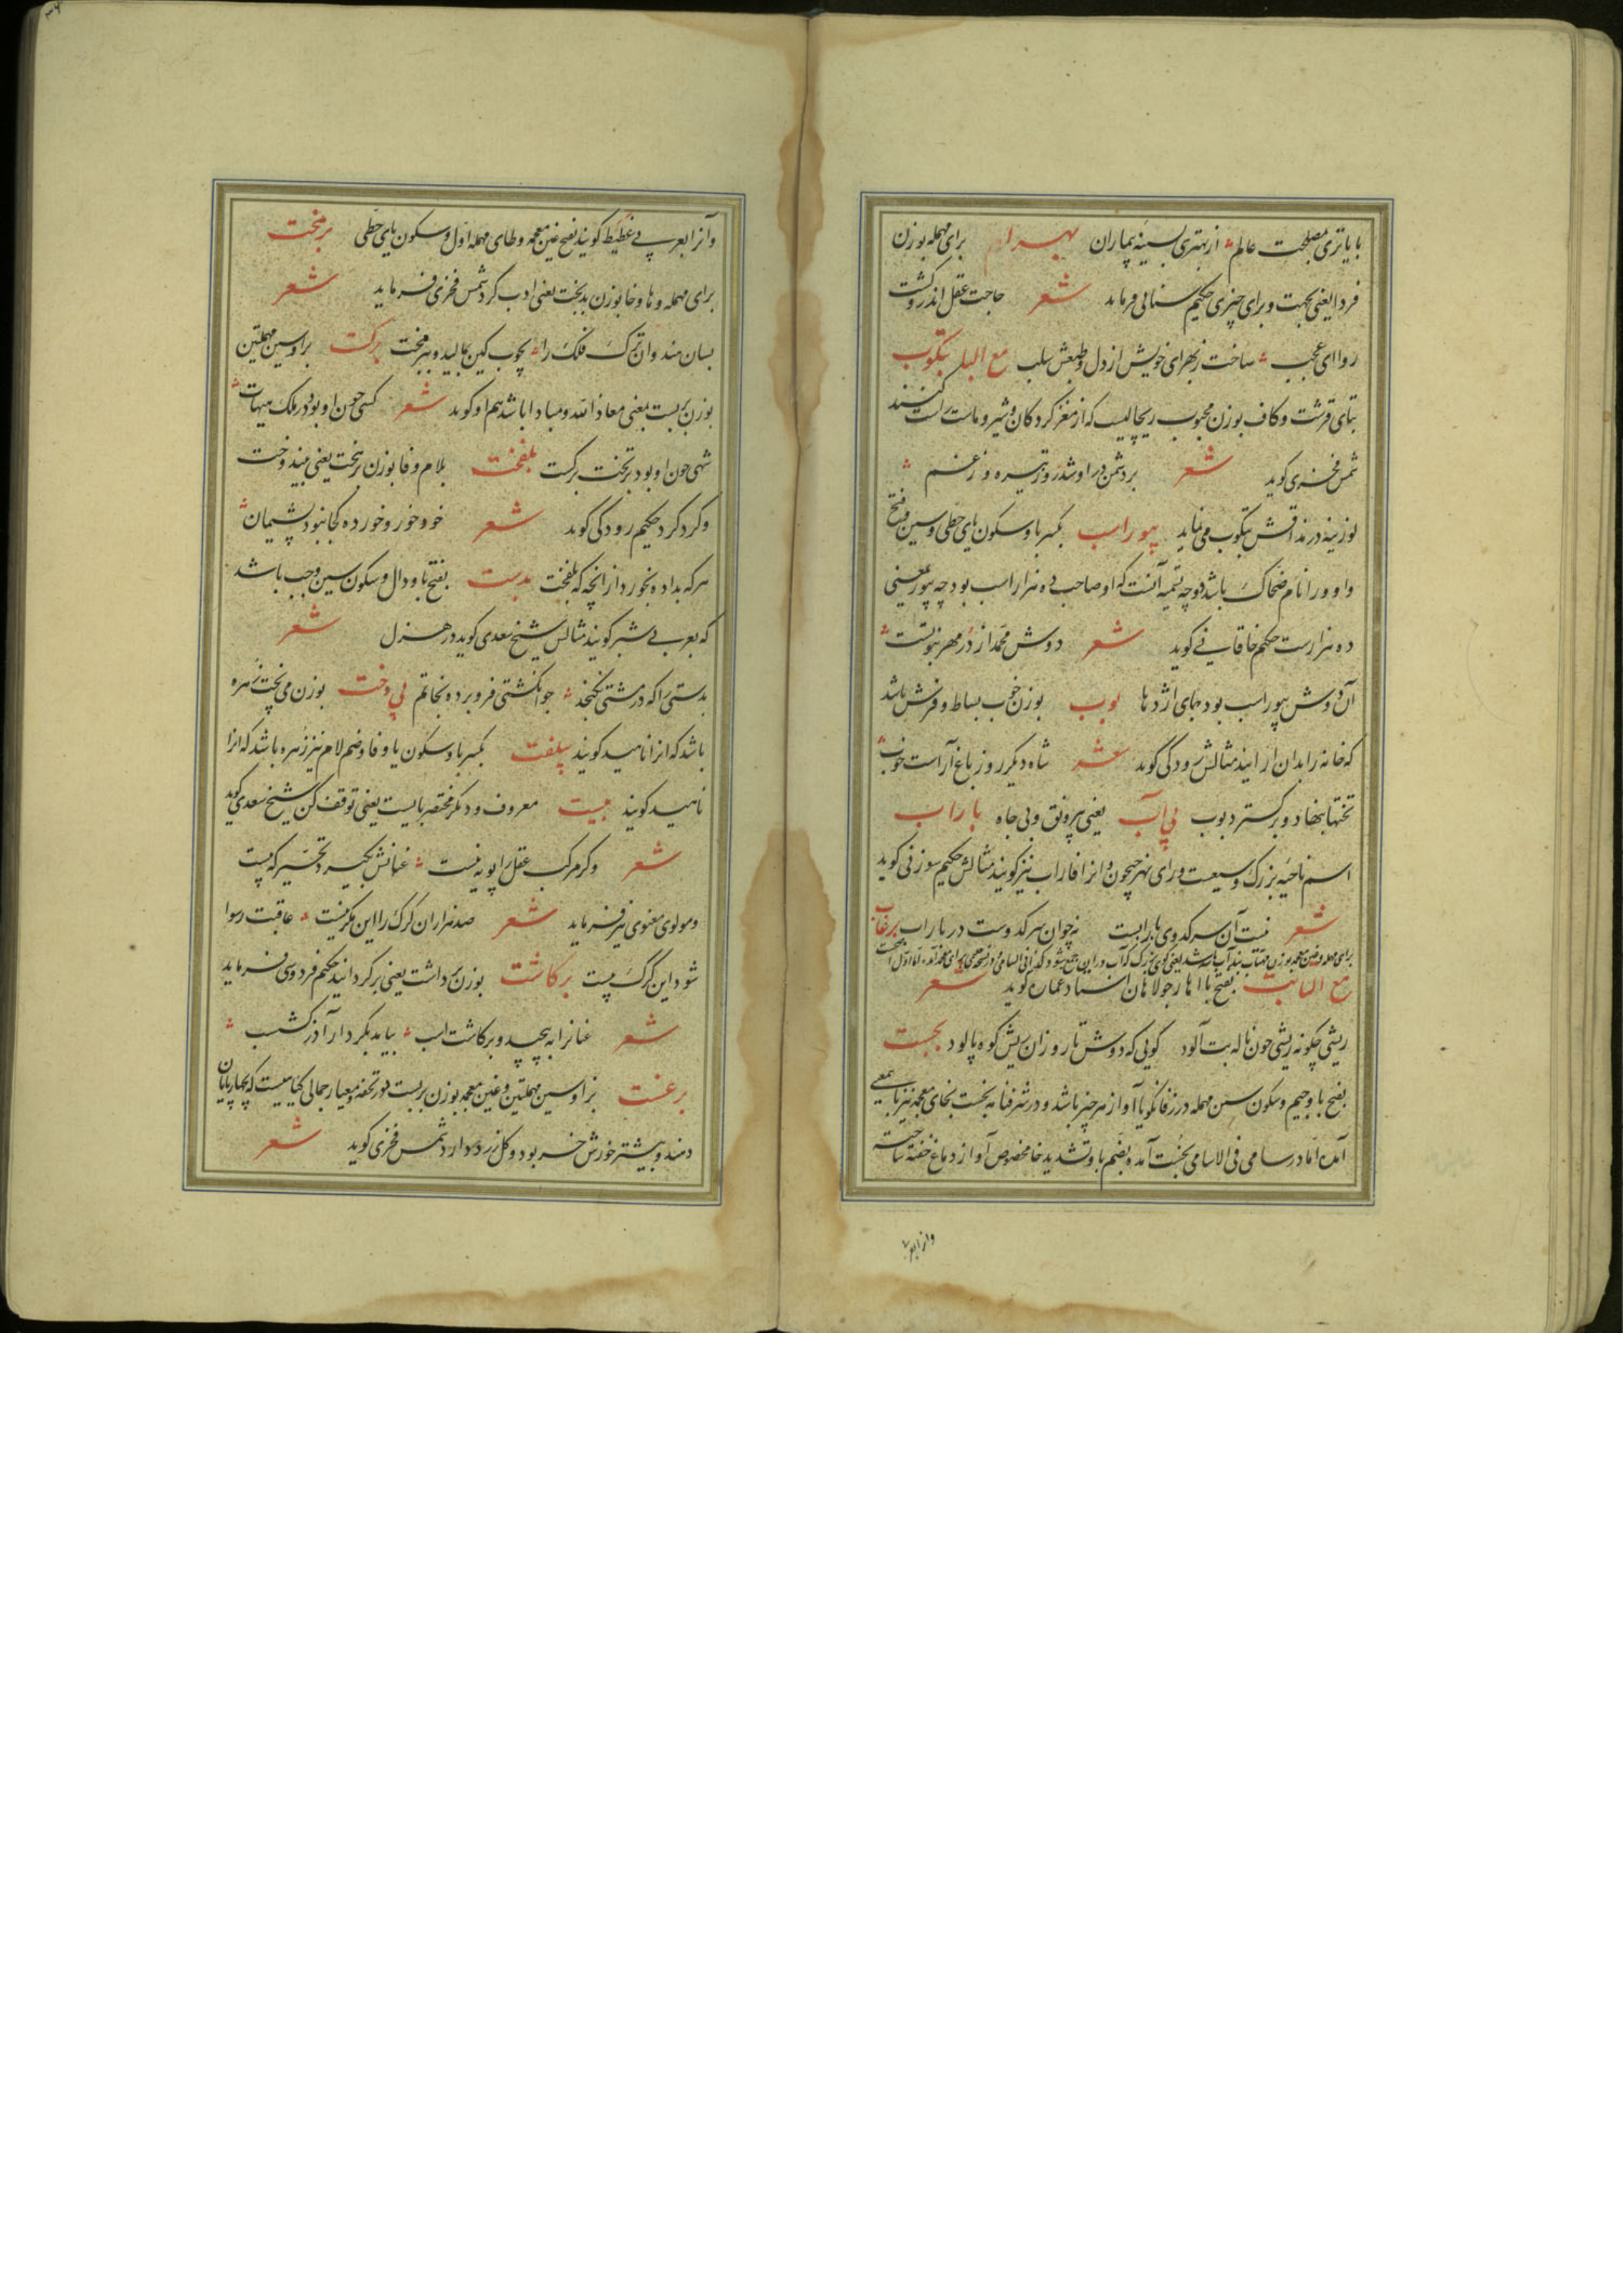 با یاتری مصلحت عالم از بهتری سینه بیماران بهرا برای مهمله بوزن
فردا یعنی بجهت و برای چیزی حکیم سنائی فرماید شعر حاجت عقل اندرو گشت
روا ای عجب ساخت زبهرای خویش از دل و طبعش سلب مع البا بتکوب
بتای قرشت و کاف بوزن محبوب ریچالیست که از مغز کردکان و شیر و ماست راست کنند
شمس فخری کوید شعر بر دشمن او شد روز تیره و زغم
لوزینه در مذاقش بتکوب می نماید بیوراسب بکسر با و سکون یای حطی و سین و فتح
واو و را نام ضحاک باشد و وجه تسمیه آنست که او صاحب ده هزار اسب بود چه بیور یعنی
ده هزارست حکیم خاقانی کوید شعر دوش محمد از در مهر نبوتست
آن دوش بیوراسب بود جای اژدها بوب بوزن خوب بساط و فرش باشد
که خانه را بدان آرایند مثالش رودکی کوید شعر شاه دیکر روز باغ آراست خوب
تختها بنهاد و برکسترد بوب بی آب یعنی بی رونق و بی جاه باراب
اسم ناحیهٔ بزرک وسیعت ورای نهر جیحون و انرا فاراب نیز کویند مثالش حکیم سوزنی کوید
شعر نیست آن سر کدوی بارابست نه چو آن سر کدوست در باراب برغاب
برای مهمله و غین معجمه بوزن مهتاب بند آب باشد یعنی کوی بزرک که آب در آن جمع شود کذا فی السامی
مع التا بت بفتح با اهار جولاهان استاد عماره کوید شعر
ریشی چکونه ریشی چون ماله بت آلود کویی که دوش تا روز آن ریش کوه پالود بجست
بفتح با و جیم و سکون سین مهمله در زفانکویا آواز هر چیز باشد و در شرفنامه بخست بخای معجمه نیز باین معنی
آمده اما در سامی فی الاسامی بخست آمده بضم با و تشدید خا مخصوص آواز دماغ خفته ساخته
وانرا بعربی
وآنرا بعربی غطیط کویند بفتح غین معجمه و طای مهمله اول و سکون یای حطی برمخت
برای مهمله و ها و خا بوزن بدبخت یعنی ادب کرد شمس فخری فرماید شعر
بسان هندوان ترک فلک را بچوب کین بمالید و ببرمخت برکست برا و سین مهملتین
بوزن بربست بمعنی معاذ الله و مبادا باشد هم او کوید شعر کسی چون او بود در ملک هیهات
شهی چون او بود بر تخت برکست بلفخت بلام و فا بوزن برتخت یعنی بیندوخت
و کرد کرد حکیم رودکی کوید شعر خود خور و خورده کجا نبود پشیمان
هر که بداد و بخورد از انچه که بلفخت بدست بفتح با و دال و سکون سین وجب باشد
که بعربی شبر کویند مثالش شیخ سعدی کوید در هزل شعر
بدستی را که در مشتی نکنجد جو انکشتی فرو برده بخاتم بی وخت بوزن می پخت زهره
باشد که انرا ناهید کویند بیلفت بکسر با و سکون یا و فا و ضم لام نیز زهره باشد که انرا
ناهید کویند بیست معروف و دیکر مختصر بایست یعنی توقف کن شیخ سعدی کوید
شعر و کر مرکب عقل را پویه نیست عنانش بکیرد تحیر که بیست
و مولوی معنوی نیز فرماید شعر صد هزاران کرک را این مکر نیست عاقبت رسوا
شود این کرک بیست برکاشت بوزن برداشت یعنی برکردانید حکیم فردوسی فرماید
شعر عنانرا به پیچید و برکاشت اسب بیامد بکردار آذرکشسب
برغست برا و سین مهملتین و غین معجمه بوزن بربست در تحفه و معیار جمالی کیاهیست که بچهارپایان
دهند و بیشتر خورش خر بود و کل زرد دارد شمس فخری کوید شعر